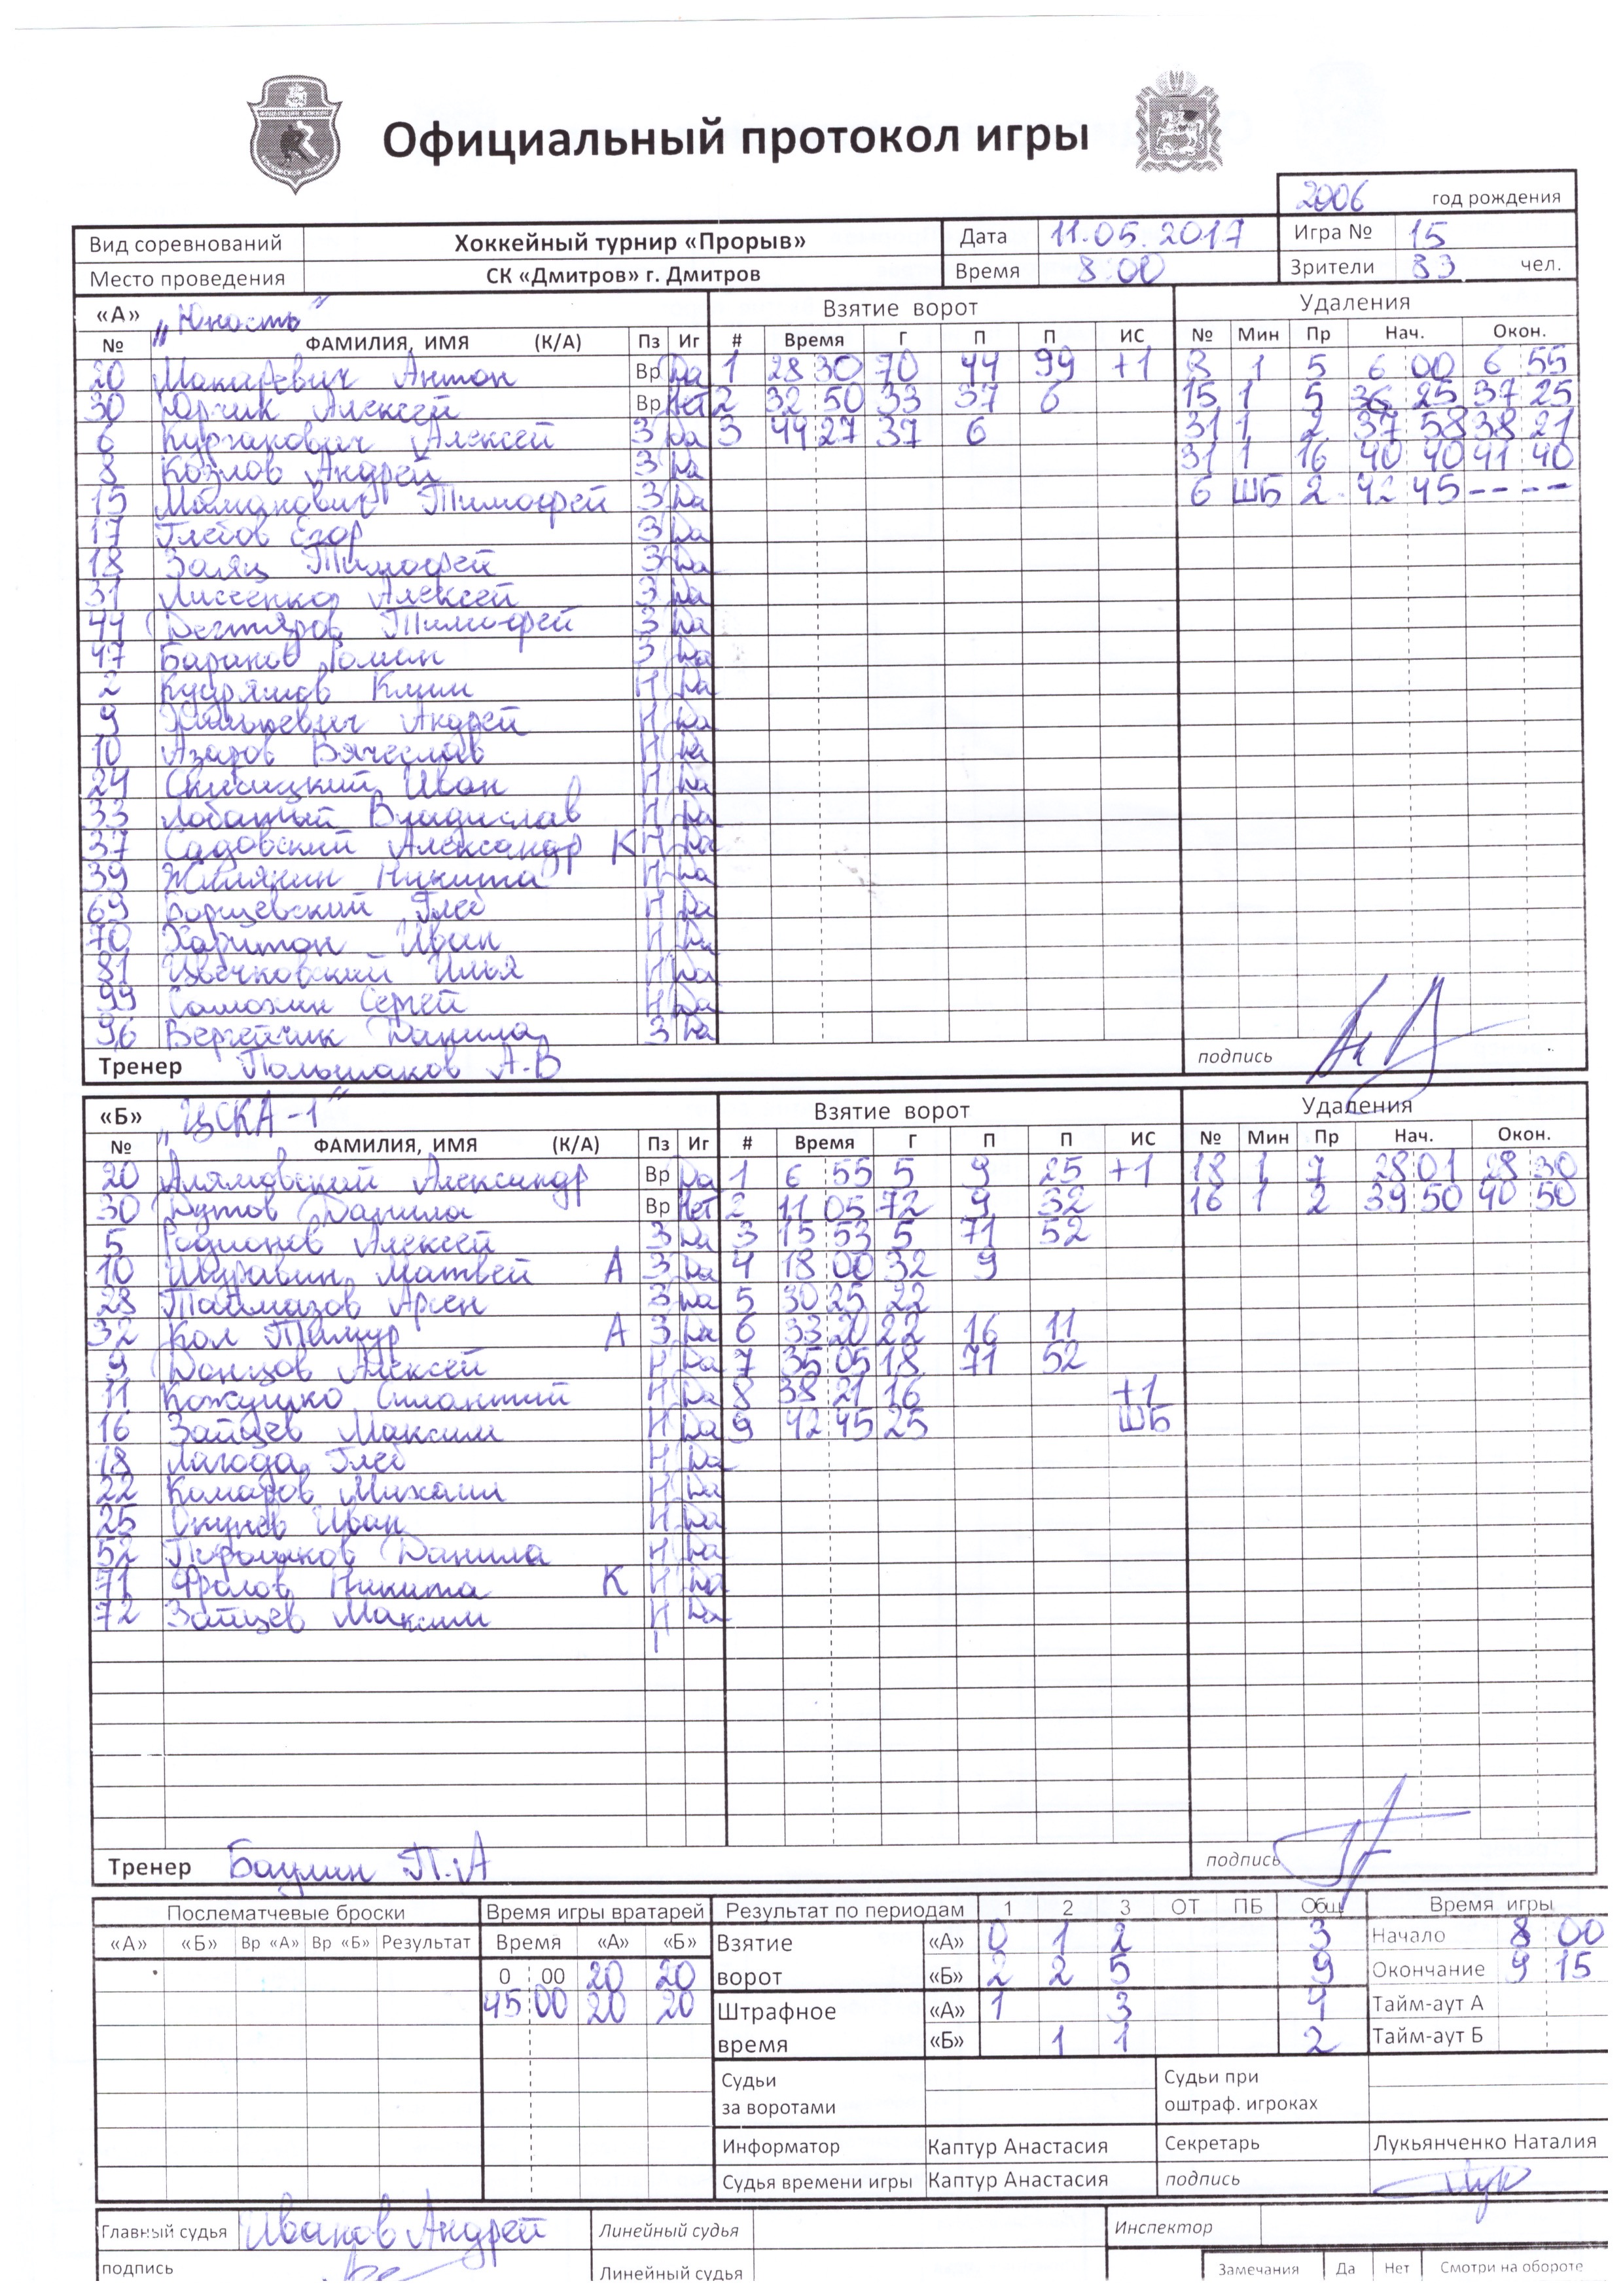 Официальный протокол игры
2006 год рождения
Вид соревнований Хоккейный турнир «Прорыв» Дата 11.05.2017 Игра № 15
Место проведения СК «Дмитров» г. Дмитров Время 8:00 Зрители 83 чел.
«А» "Юность" Взятие ворот Удаления
№ ФАМИЛИЯ, ИМЯ (К/А) Пз Иг # Время Г П П ИС № Мин Пр Нач. Окон.
20 Макаревич Антон Вр Да 1 28 30 70 44 99 +1 8 1 5 6 00 6 55
30 Юрчик Алексей Вр Нет 2 32 50 33 37 6 15 1 5 36 25 37 25
6 Курганович Алексей З Да 3 44 27 37 6 31 1 2 37 58 38 21
8 Козлов Андрей З Да 31 1 16 40 40 41 40
15 Тимофей З Да 6 ШБ 2 42 45 - - - -
17 Глебов Егор З Да
18 Заяц Тимофей З Да
31 Лиссенков Алексей З Да
44 Дегтяров Тимофей З Да
47 Баранов Роман З Да
2 Кудряшов Клим Н Да
9 Андрей Н Да
10 Азаров Вячеслав Н Да
24 Иван Н Да
33 Лобатый Владислав Н Да
37 Садовский Александр К Н Да
39 Жилянин Никита Н Да
69 Борщевский Глеб Н Да
70 Харитон Иван Н Да
81 Цвечковский Илья Н Да
99 Самохин Сергей Н Да
96 Вергейчик Данила З Да
Тренер А.В подпись
«Б» "ЦСКА-1" Взятие ворот Удаления
№ ФАМИЛИЯ, ИМЯ (К/А) Пз Иг # Время Г П П ИС № Мин Пр Нач. Окон.
20 Алямовский Александр Вр Да 1 6 55 5 9 25 +1 18 1 7 28 01 28 30
30 Дутов Данила Вр Нет 2 11 05 72 9 32 16 1 2 39 50 40 50
5 Родионов Алексей З Да 3 15 53 5 71 52
10 Муравин Матвей А З Да 4 18 00 32 9
28 Таймазов Арсен З Да 5 30 25 22
32 Кол Тимур А З Да 6 33 20 22 16 11
9 Донцов Алексей Н Да 7 35 05 18 71 52
11 Кожушко Н Да 8 38 21 16 +1
16 Зайцев Максим Н Да 9 42 45 25 ШБ
18 Лагода Глеб Н Да
22 Комаров Михаил Н Да
25 Окунев Иван Н Да
52 Порошков Данила Н Да
71 Фролов Никита К Н Да
72 Зайцев Максим Н Да
Тренер Баулин П.А подпись
Послематчевые броски Время игры вратарей Результат по периодам 1 2 3 ОТ ПБ Общ Время игры
«А» «Б» Вр «А» Вр «Б» Результат Время «А» «Б» Взятие «А» 0 1 2 3 Начало 8 00
0 00 20 20 ворот «Б» 2 2 5 9 Окончание 9 15
45 00 20 20 Штрафное «А» 1 3 4 Тайм-аут А
время «Б» 1 1 2 Тайм-аут Б
Судьи за воротами Судьи при оштраф. игроках
Информатор Каптур Анастасия Секретарь Лукьянченко Наталия
Судья времени игры Каптур Анастасия подпись
Главный судья Иванов Андрей Линейный судья Инспектор
подпись Линейный судья Замечания Да Нет Смотри на обороте